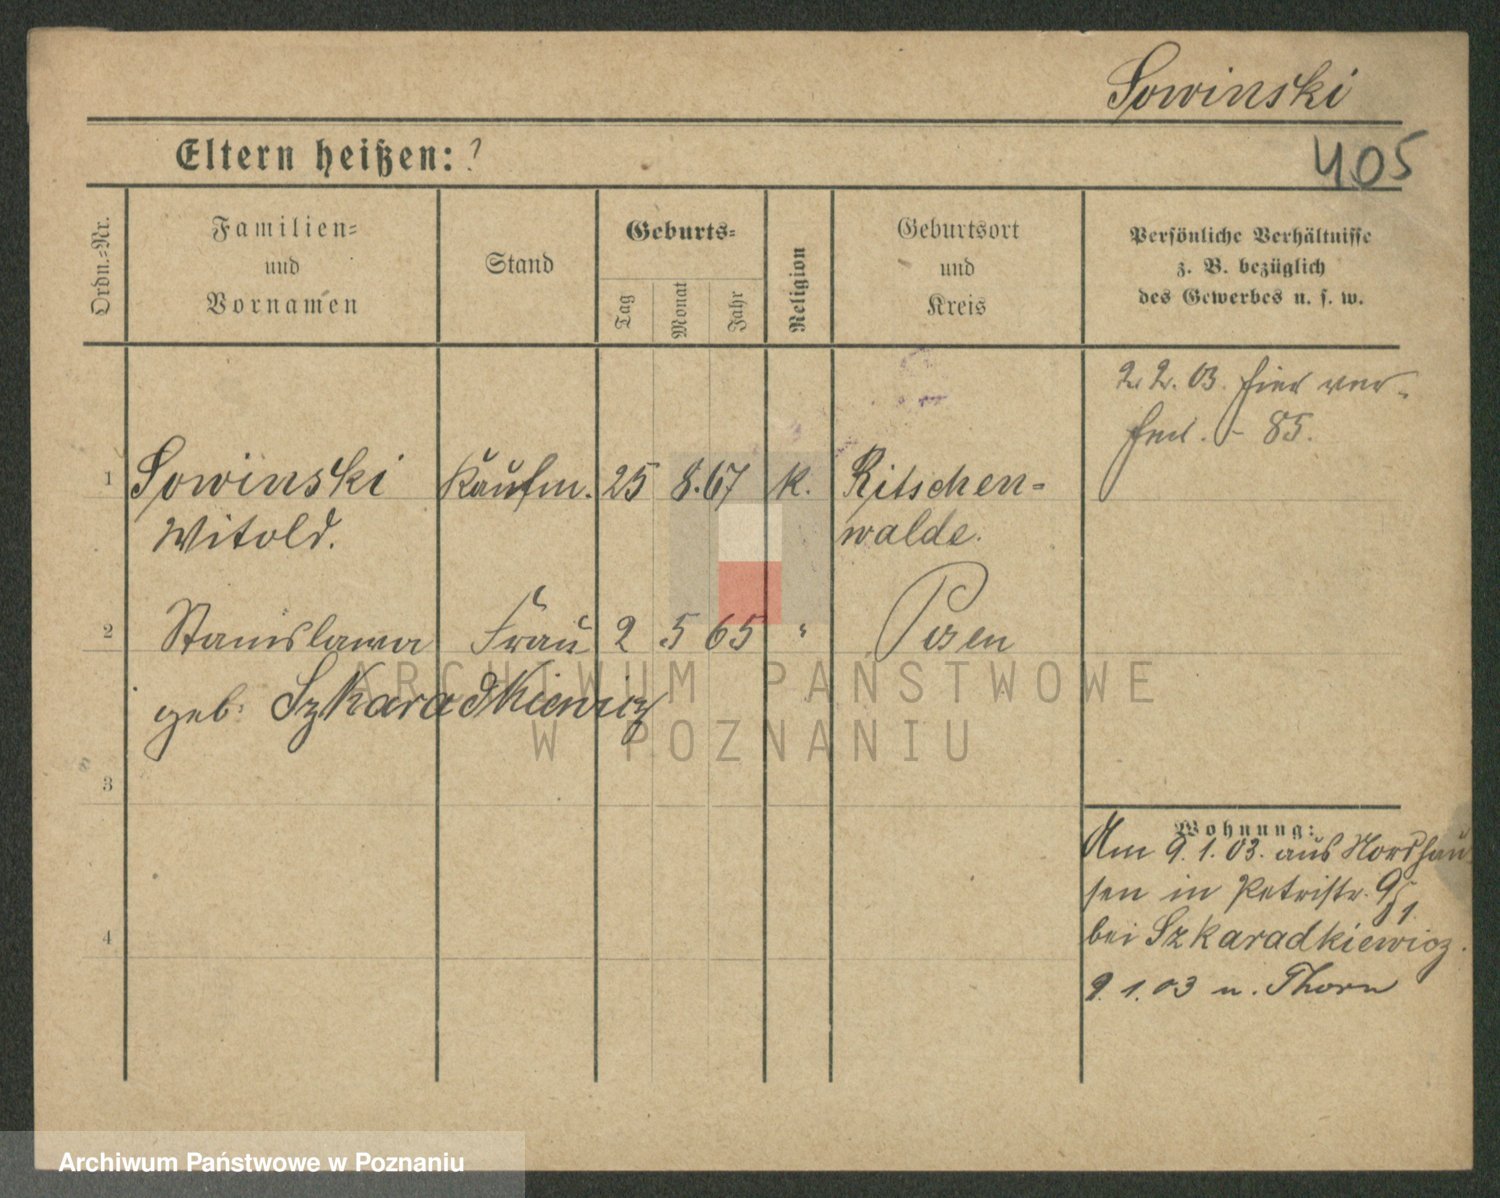 Sowinski
Eltern heißen: ?
405
Ordn.=Nr.
Familien=
und
Vornamen
Stand
Geburts=
Tag
Monat
Jahr
Religion
Geburtsort
und
Kreis
Persönliche Verhältnisse
z. B. bezüglich
des Gewerbes u. s. w.
2. 2. 03. hier ver-
85.
1 Sowinski Kaufm. 25 8. 67 k. Ritschen-
Witold. walde.
2 Stanislawa Frau 2 5 65 " Posen
geb. Szkaradkiewicz
ARCHIWUM PAŃSTWOWE
W POZNANIU
3
4
Wohnung:
Am 9. 1. 03. aus Nordhau
sen in Petristr. 9/1.
bei Szkaradkiewicz.
9. 1. 03 n. Thorn
Archiwum Państwowe w Poznaniu